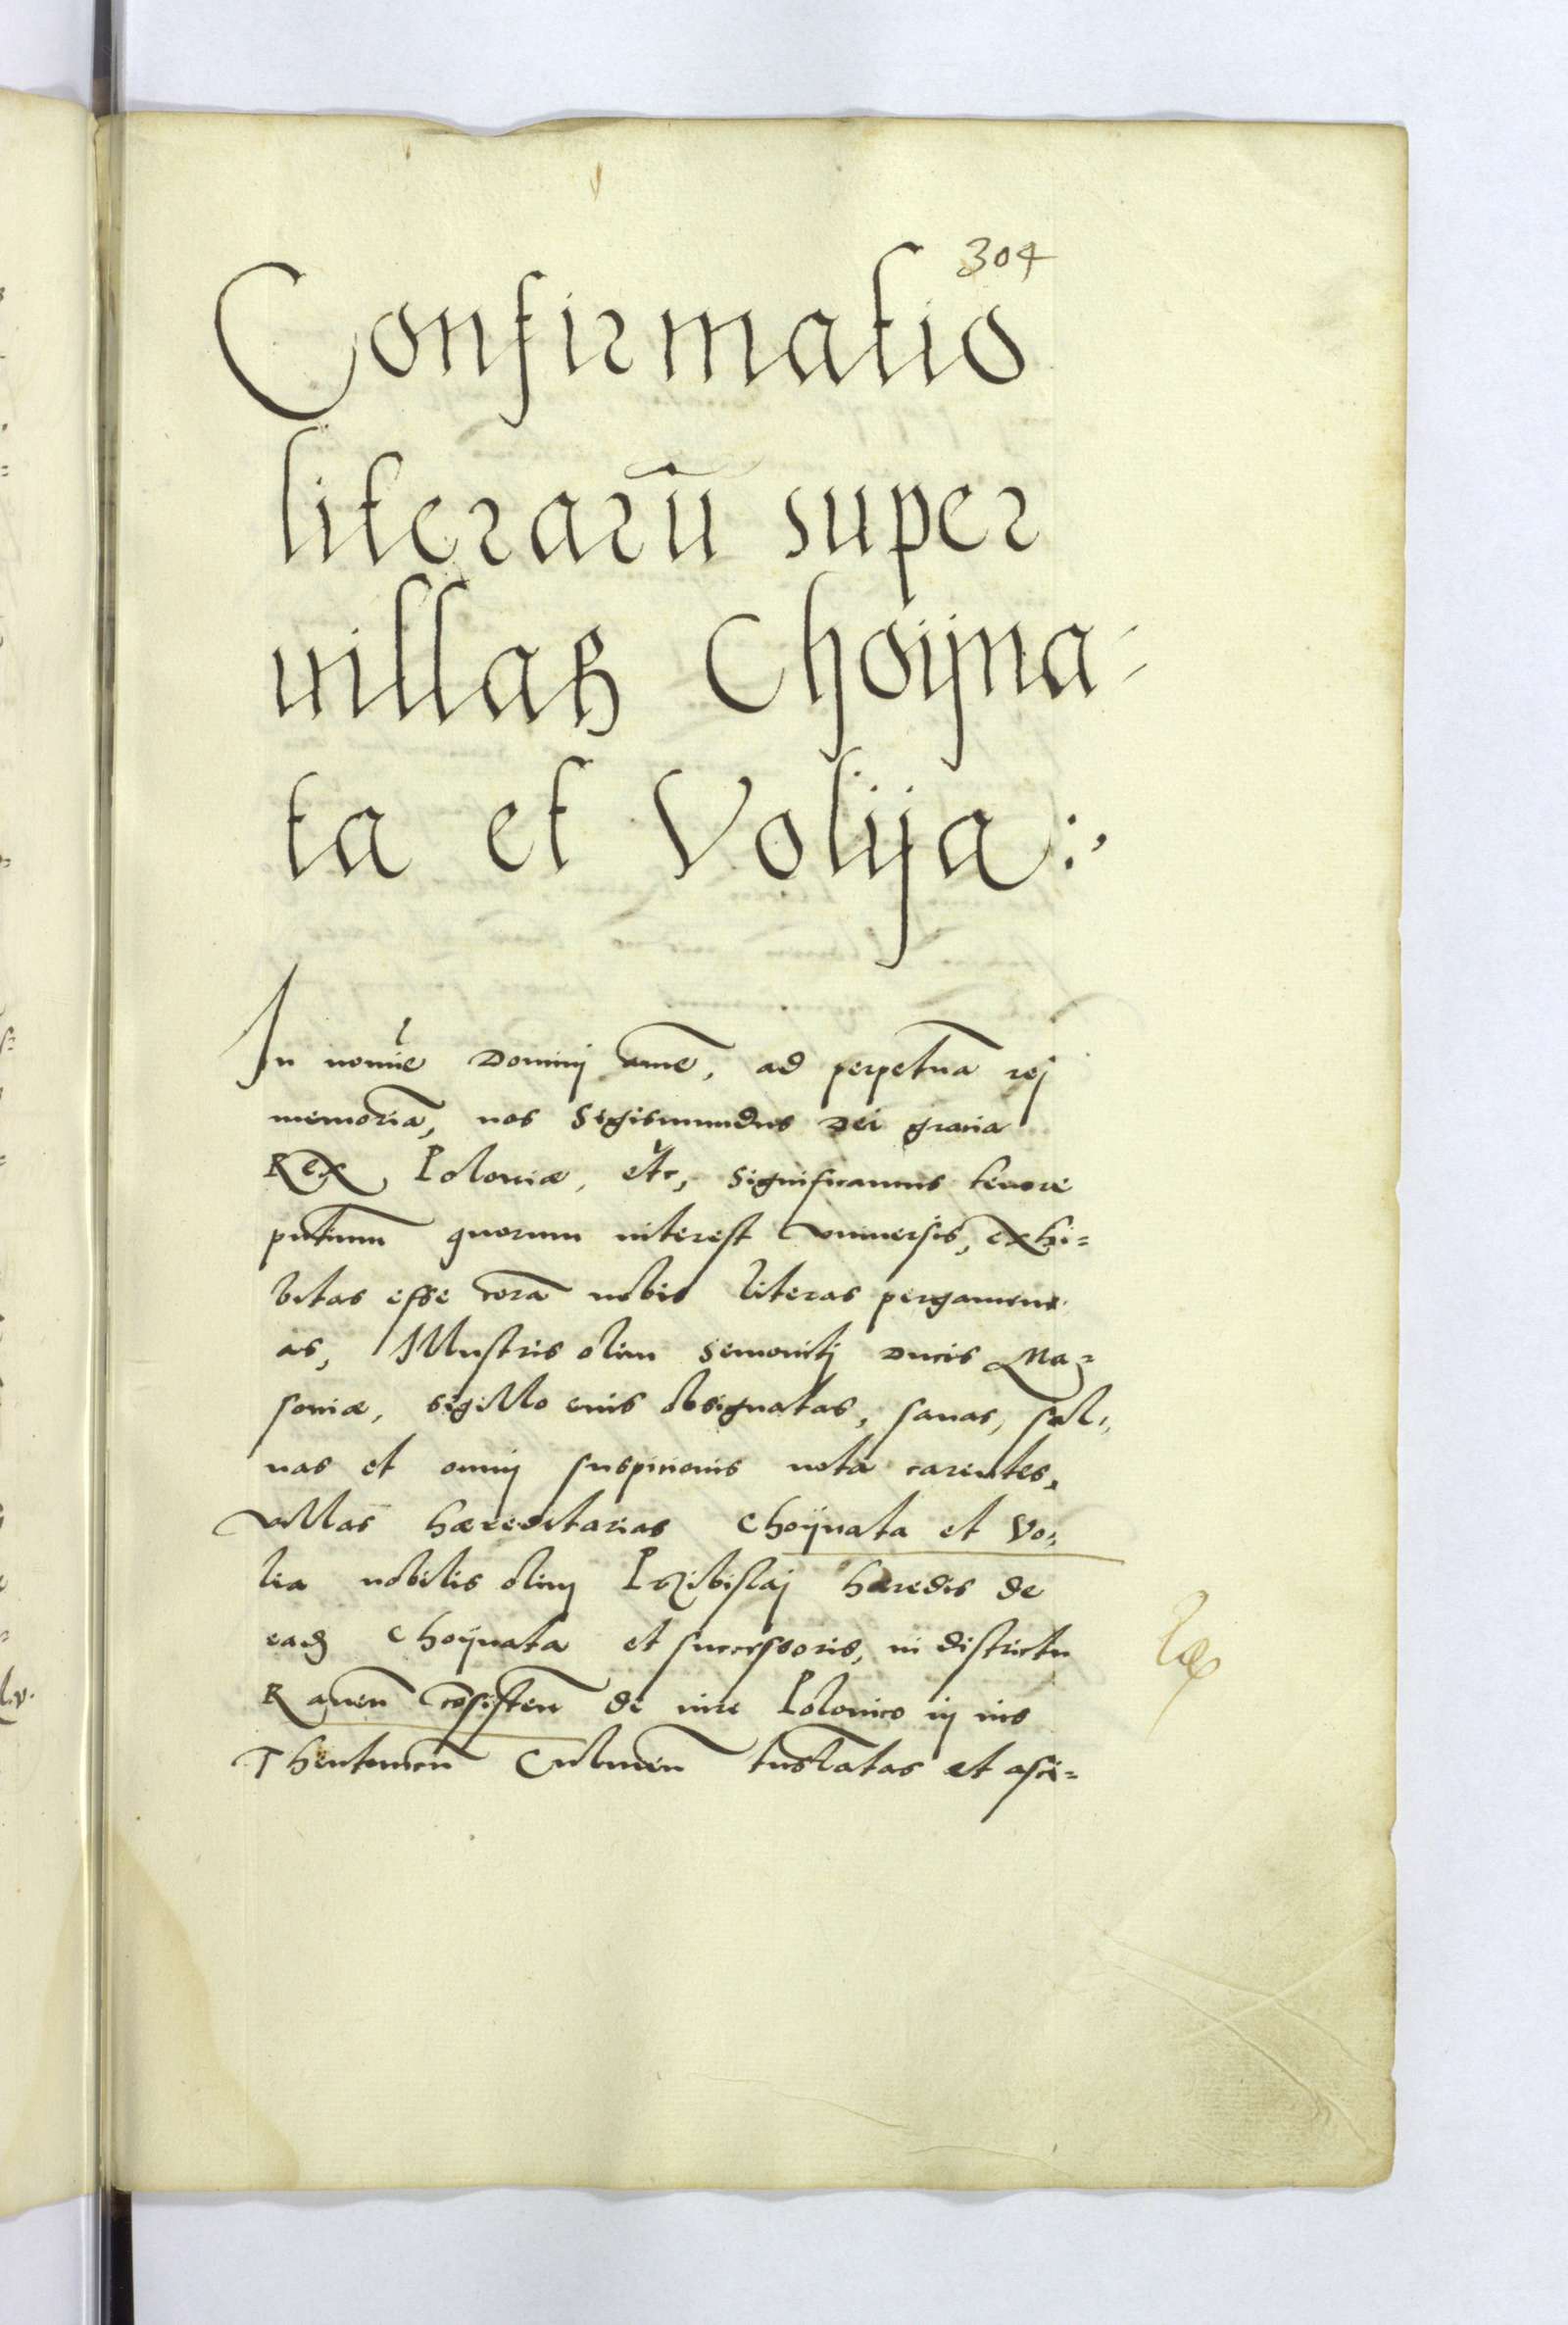 304
Confirmatio
literarū super
uillas Choijna-
ta et Volija:,
In nomīe Dominj amē, ad perpetuā rej
memoriā, nos Sigismundus Dei gratia
Rex Poloniæ, etc, significamus tenore
pntium quorum interest vniuersis, exhi=
bitas esse corā nobis literas pergamine
as, Illustris olim Semouitj Ducis Ma=
soniæ, sigillo eius obsignatas, sanas, sal=
uas et omnj suspicionis nota carentes,
villas hæreditarias Choijnata et Vo=
lia nobilis olim Przibislaj hæredis de
eadē Choijnata et successoris, in districtu
Rauen̄ cōsisten̄ de iure Polonico in ius
Theutonicū Culmen̄ trāslatas et asci=